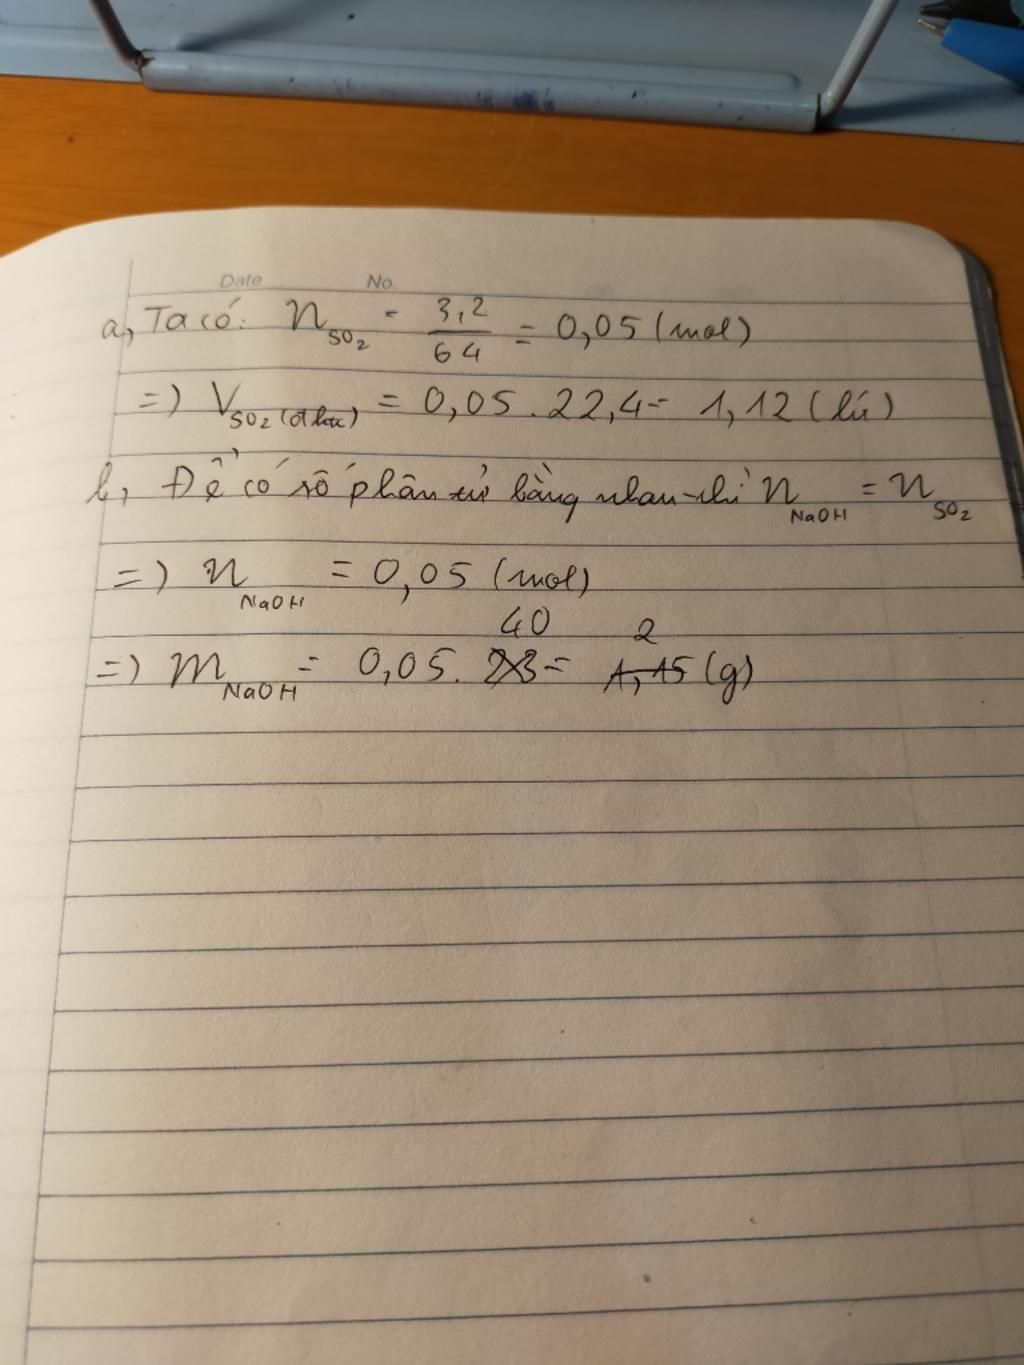 Date No.
a, Ta có: n SO2 = 3,2 / 64 = 0,05 (mol)
=) V SO2 (đktc) = 0,05 . 22,4 = 1,12 (lít)
b, Để có số phân tử bằng nhau thì n NaOH = n SO2
=) n NaOH = 0,05 (mol)
40 2
=) m NaOH = 0,05. 23 = 1,15 (g)